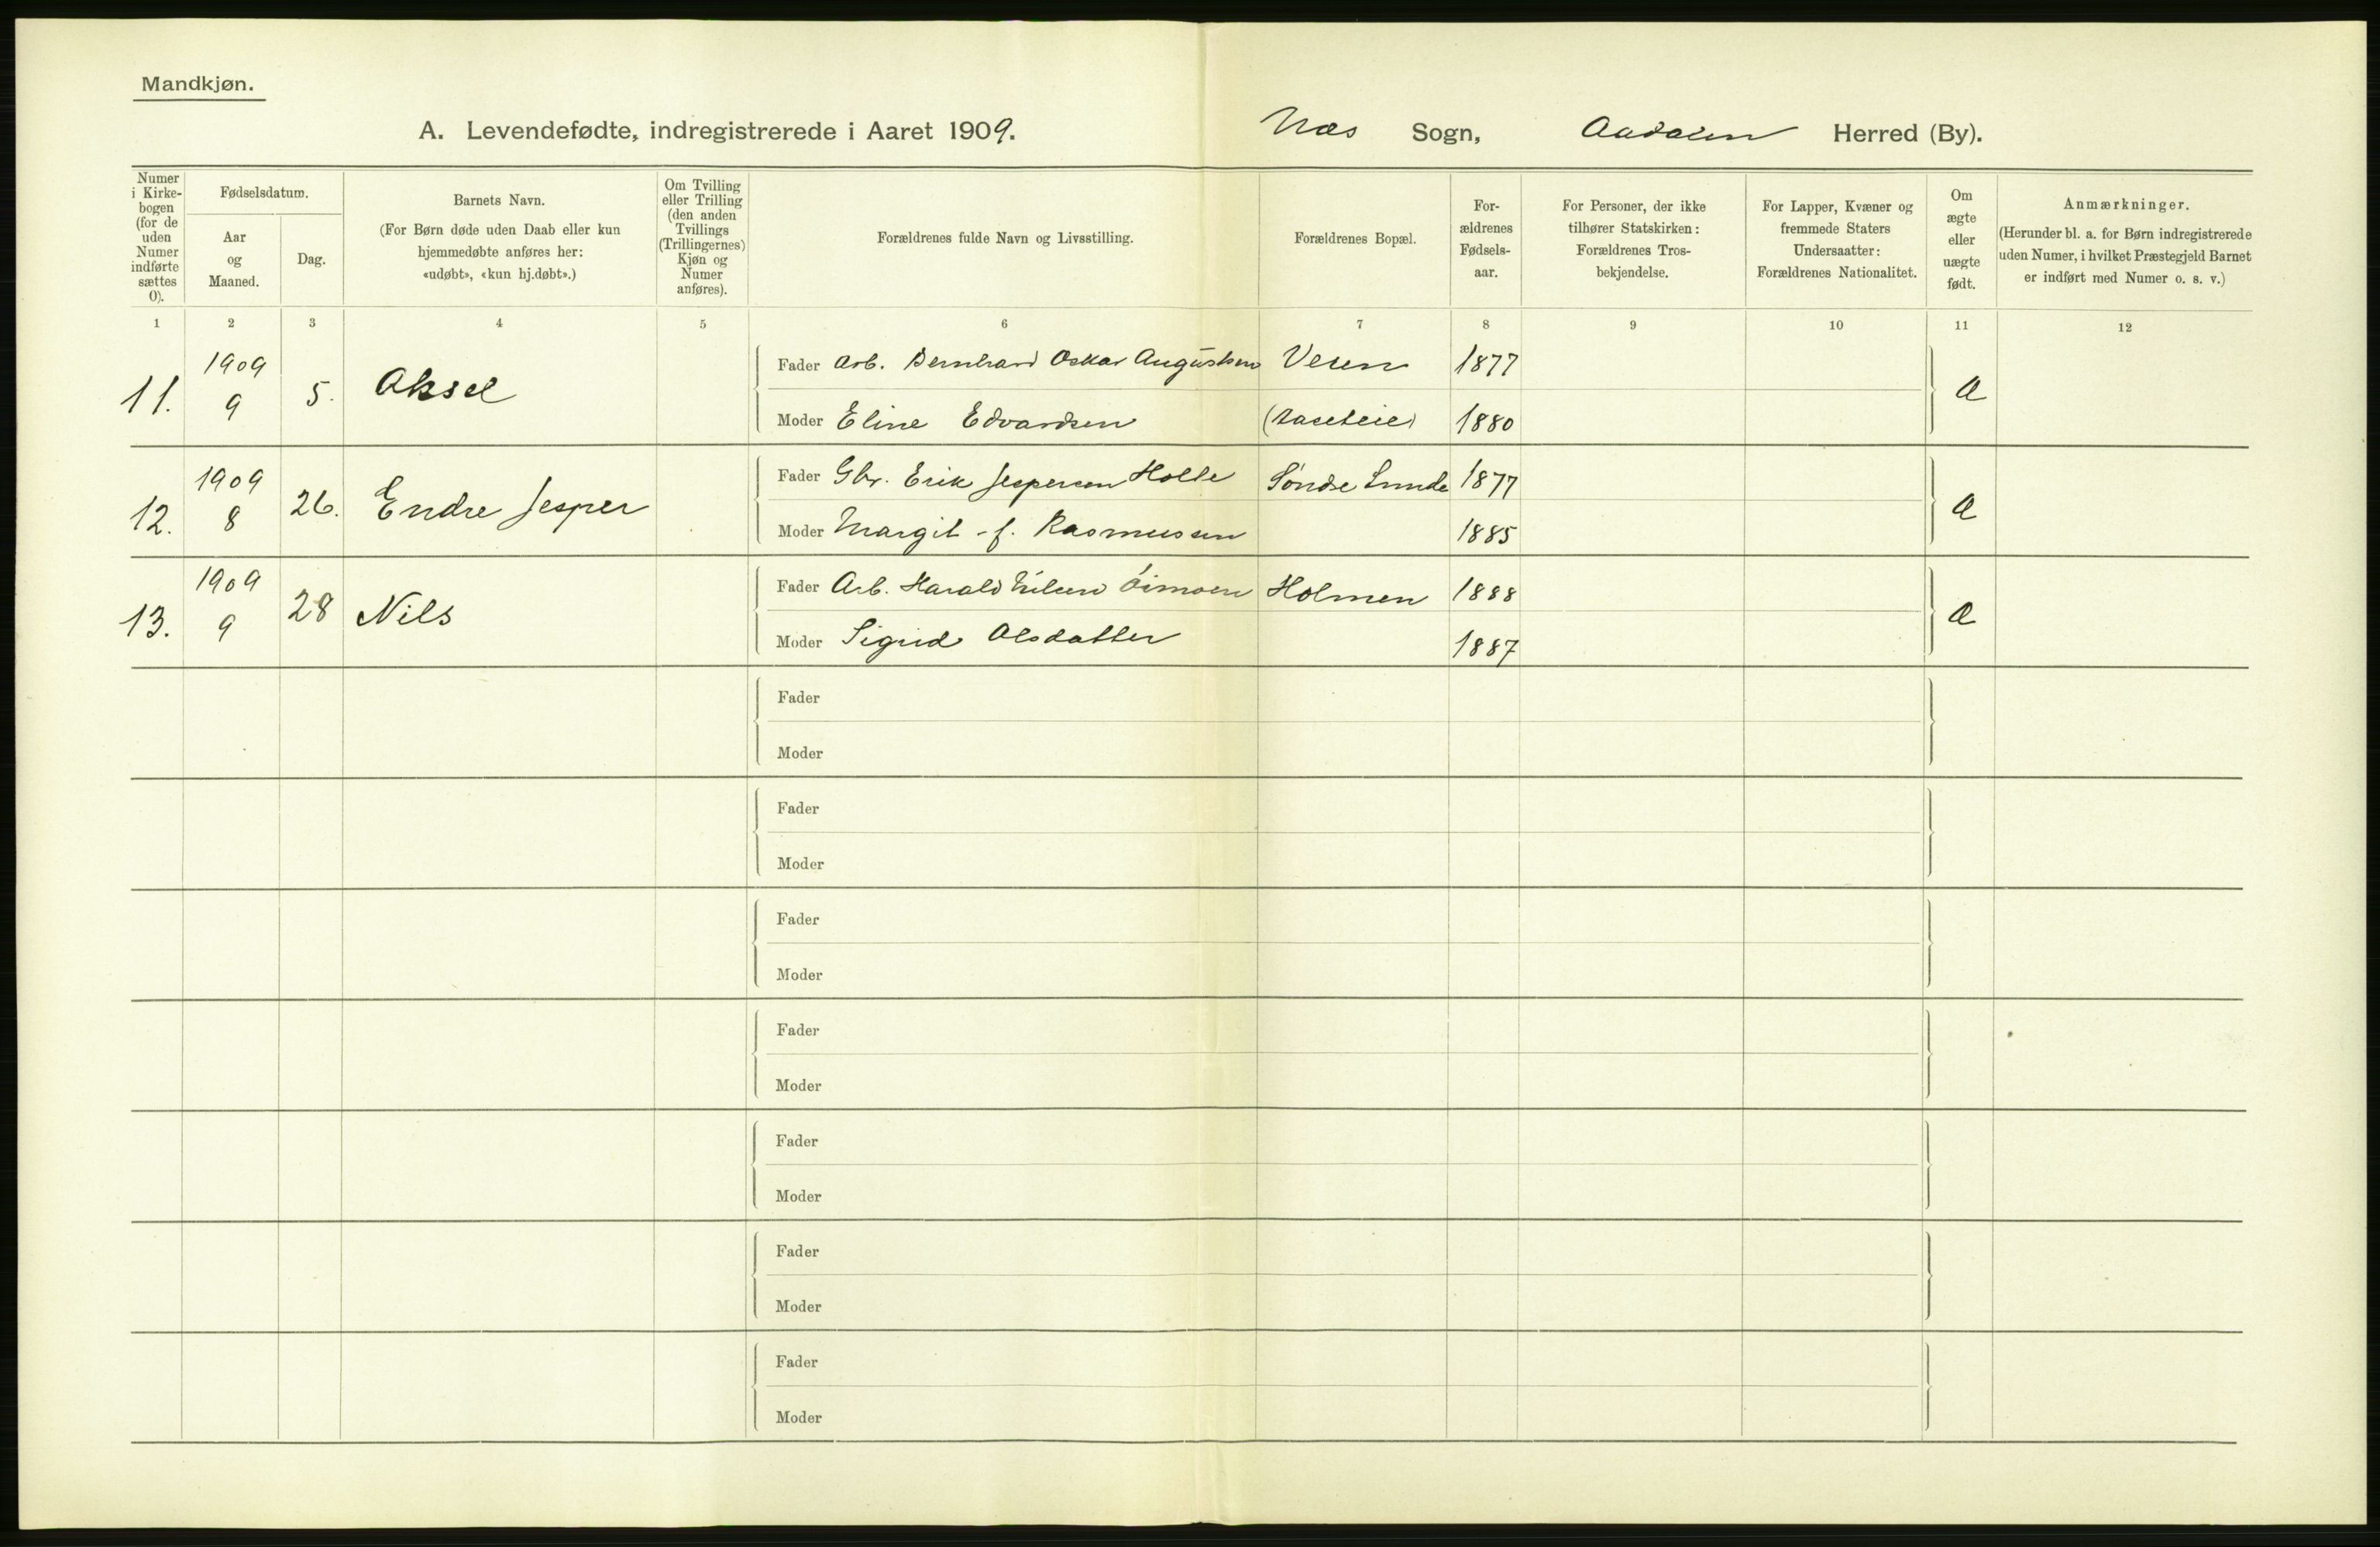 Mandkjøn.
A. Levendefødte, indregistrerede i Aaret 1909.
Næs Sogn, Aadalen Herred (By).
Numer i Kirke-bogen (for de uden Numer indførte sættes 0).
Fødselsdatum.
Aar og Maaned.
Dag.
Barnets Navn.
(For Børn døde uden Daab eller kun
hjemmedøbte anføres her:
«udøbt», «kun hj.døbt».)
Om Tvilling
eller Trilling
(den anden
Tvillings
(Trillingernes)
Kjøn og
Numer
anføres).
Forældrenes fulde Navn og Livsstilling.
Forældrenes Bopæl.
For-
ældrenes
Fødsels-
aar.
For Personer, der ikke
tilhører Statskirken:
Forældrenes Tros-
bekjendelse.
For Lapper, Kvæner og
fremmede Staters
Undersaatter:
Forældrenes Nationalitet.
Om
ægte
eller
uægte
født.
Anmærkninger.
(Herunder bl. a. for Børn indregistrerede
uden Numer, i hvilket Præstegjeld Barnet
er indført med Numer o. s. v.)
1 2 3 4 5 6 7 8 9 10 11 12
11. 1909 9 5. Aksel
Fader Arb. Bernhard Oskar Augustsen Veien 1877
Moder Eline Edvardsen 1880
a
12. 1909 8 26. Endre Jesper
Fader Gbr. Erik Jespersen Holte Söndre Lunde 1877
Moder Margit f. Rasmussen 1885
a
13. 1909 9 28 Nils
Fader Arb. Harald Nilsen Öimoen Holmen 1888
Moder Sigrid Olsdatter 1887
a
Fader
Moder
Fader
Moder
Fader
Moder
Fader
Moder
Fader
Moder
Fader
Moder
Fader
Moder